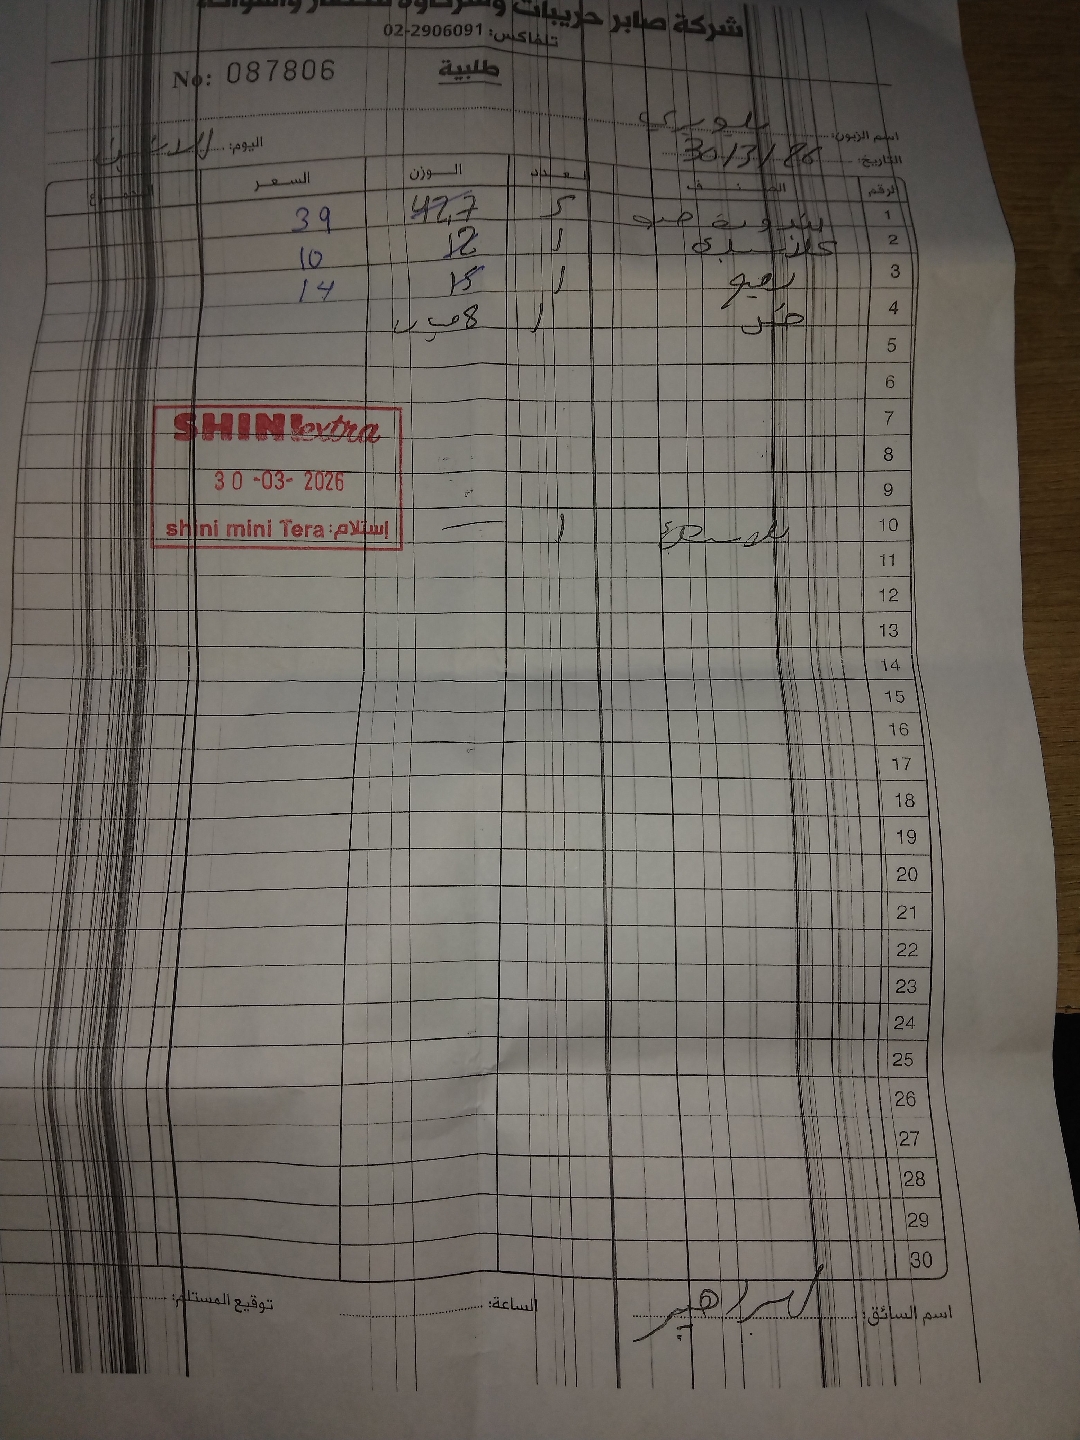 شركة صابر حريبات وشركاؤه للخضار والفواكه
تلفاكس: 02-2906091
No: 087806
طلبية
اسم الزبون:
اليوم: الاثنين
التاريخ: 30/3/26
الرقم الصنف العدد الوزن السعر المجموع
1 بندورة 5 42,7 39
2 1 12 10
3 1 15 14
4 1 8
5
6
7
8
9
10 1 —
11
12
13
14
15
16
17
18
19
20
21
22
23
24
25
26
27
28
29
30
SHINI extra
30 -03- 2026
shini mini Tera :إستلام
اسم السائق: ابراهيم
الساعة:
توقيع المستلم: